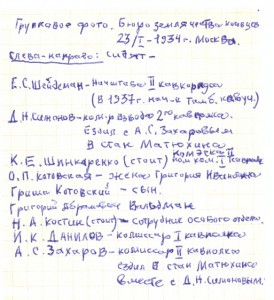 Групповое фото. Бюро землячества котовцев
23/I-1934г. Москва.
Слева-направо: сидят -
Е.С. Шейдеман - начштаба II кавкорпуса
(В 1937г. нач-к
Д.Н. Симонов - ком-р взвода 2го кавполка.
Ездил с А.С. Захаровым
В стан Матюхина
К.Е. Шинкаренко (стоит) пом ком. I
О.П. Котовская - жена Григория Ивановича
Гриша Котовский - сын.
Григорий Абрамович Вальдман
Н.А. Костин (стоит) - сотрудник особого отдела.
И.К. Данилов - комиссар I кавполка
А.С. Захаров - комиссар II кавполка
ездил в стан Матюхина
вместе с Д.Н. Симоновым.